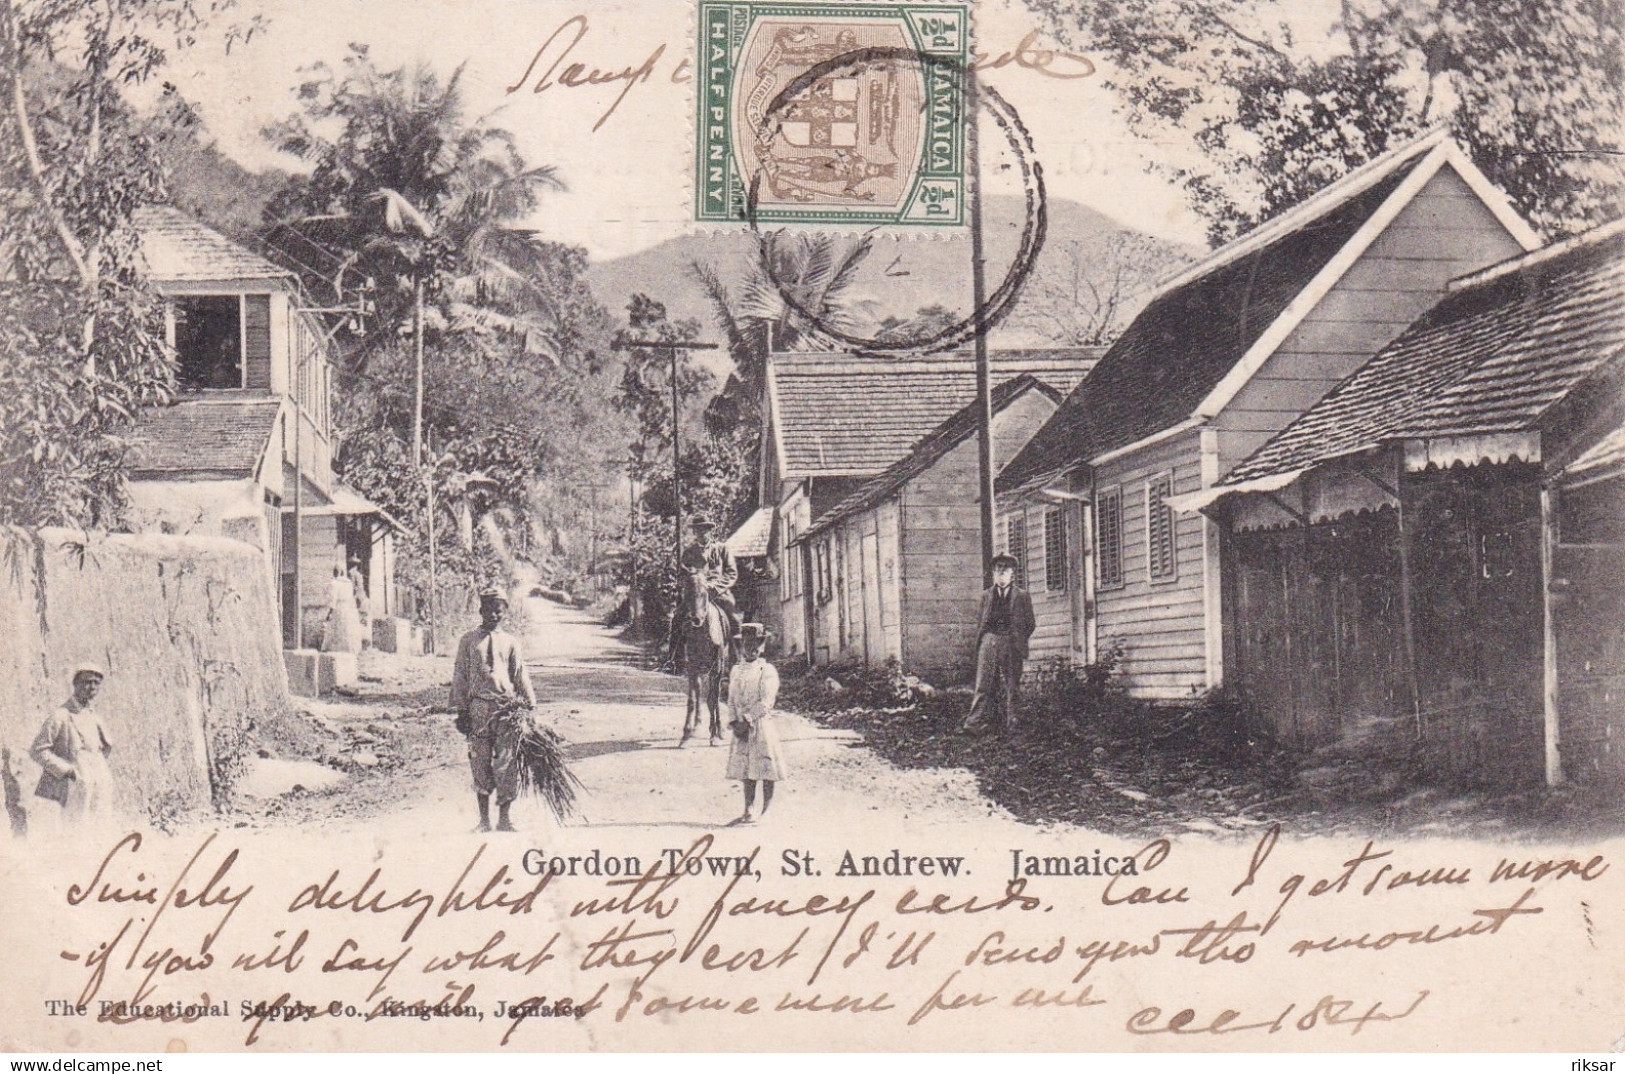 Stamp
HALFPENNY
POSTAGE
½d
JAMAICA
½d
Gordon Town, St. Andrew. Jamaica
Simply delighted with fancy cards. Can I get some more
- if you will say what they cost I'll send you the amount
The Educational Supply Co., Kingston, Jamaica
and you will get some more for me
delcampe.net
riksar